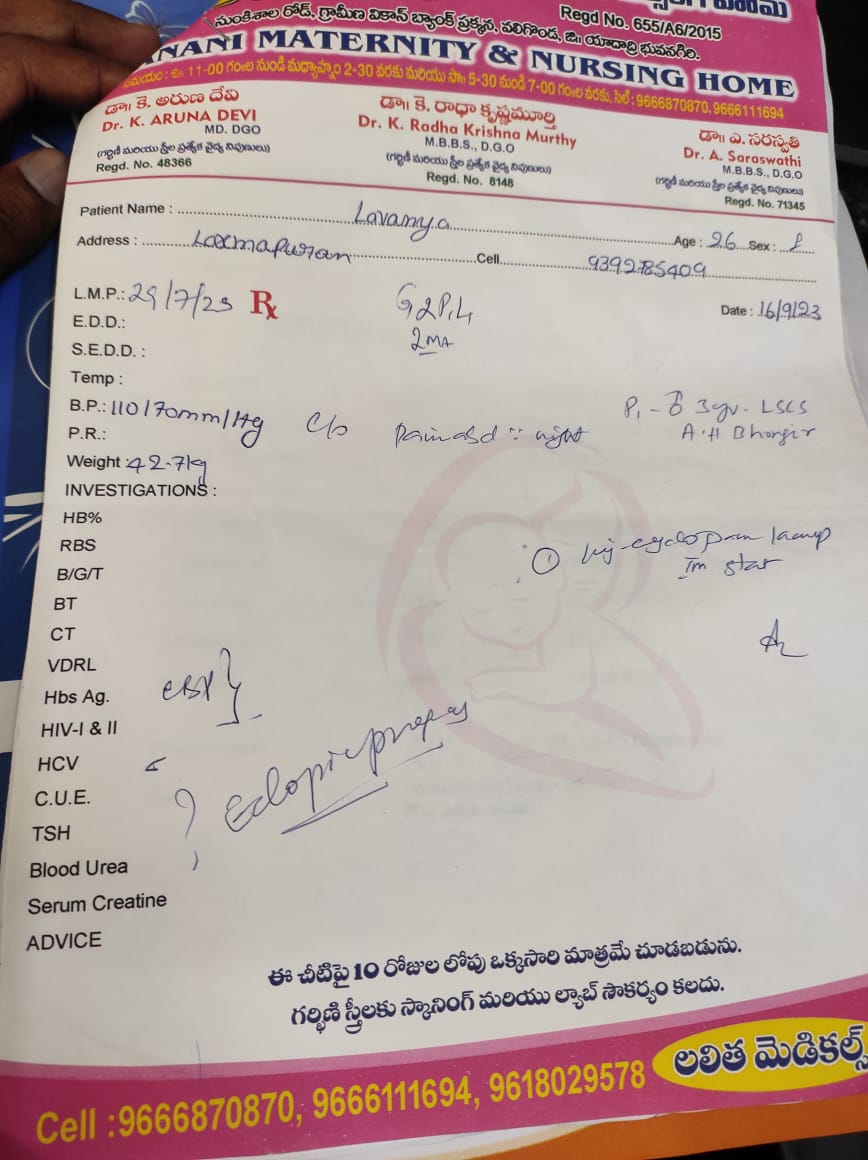 నుంకిశాల రోడ్, గ్రామీణ వికాస్ బ్యాంక్ ప్రక్కన, వలిగొండ, జి॥ యాదాద్రి భువనగిరి.
Regd No. 655/A6/2015
ANANI MATERNITY & NURSING HOME
సమయం: ఉ॥ 11-00 గం॥ల నుండి మధ్యాహ్నం 2-30 వరకు మరియు సా॥ 5-30 నుండి 7-00 గం॥ల వరకు, సెల్: 9666870870. 9666111694
డా॥ కె. అరుణ దేవి
Dr. K. ARUNA DEVI
MD. DGO
(గర్భిణి మరియు స్త్రీల ప్రత్యేక వైద్య నిపుణులు)
Regd. No. 48366
డా॥ కె. రాధా కృష్ణమూర్తి
Dr. K. Radha Krishna Murthy
M.B.B.S., D.G.O
(గర్భిణి మరియు స్త్రీల ప్రత్యేక వైద్య నిపుణులు)
Regd. No. 8148
డా॥ ఎ. సరస్వతి
Dr. A. Saraswathi
M.B.B.S., D.G.O
(గర్భిణి మరియు స్త్రీల ప్రత్యేక వైద్య నిపుణులు)
Regd. No. 71345
Patient Name : Lavanya Age : 26 Sex : f
Address : Laxmapuram Cell 9392785409
L.M.P.: 29/7/23 Rx G2P1L1 Date : 16/9/23
E.D.D.: 2MA
S.E.D.D. :
Temp :
B.P.: 110/70mm/Hg c/o Pain abd :: night P1 - 3yr - LSCS
P.R.: A.H Bhongir
Weight : 42.7kg
INVESTIGATIONS :
HB%
RBS ① Inj-cyclopam 1amp
B/G/T Im stat
BT
CT
VDRL
Hbs Ag. CBP
HIV-I & II
HCV
C.U.E. ? Ectopic pregnancy
TSH
Blood Urea
Serum Creatine
ADVICE
ఈ చీటిపై 10 రోజుల లోపు ఒక్కసారి మాత్రమే చూడబడును.
గర్భిణి స్త్రీలకు స్కానింగ్ మరియు ల్యాబ్ సౌకర్యం కలదు.
లలిత మెడికల్స్
Cell :9666870870, 9666111694, 9618029578